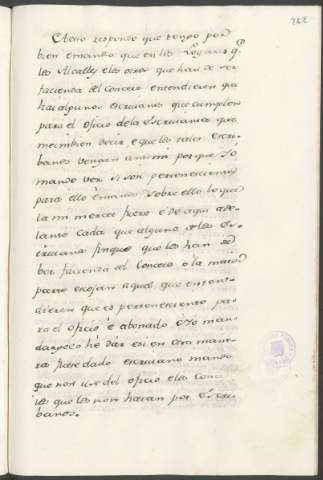 262
A esto respondo que tengo por
bien e mando que en los Logares q.e
los Alcalles e los otros que han de ver
facienda del Conceio entendieren que
hai algunos escrivanos que cumplen
para el oficio de la Escrivania que
me imbien decir, e que los tales escri-
banos vengan a mi porque Yo
mande ver si son pertenecientes
para ello è mande sobre ello lo que
la mi merced fuere e de aqui ade-
lante cada que alguno de los Es-
crivanos finque que los han de
ber facienda del Conceio o la maior
parte escojan aquel que enten-
dieren que es perteneciente pa-
ra el oficio è abonado è Yo man-
dargelo hè dar è si en otra mane-
ra fuere dado escrivano mando
que non use del oficio e los Conce-
ios que los non hayan por Escri-
banos.